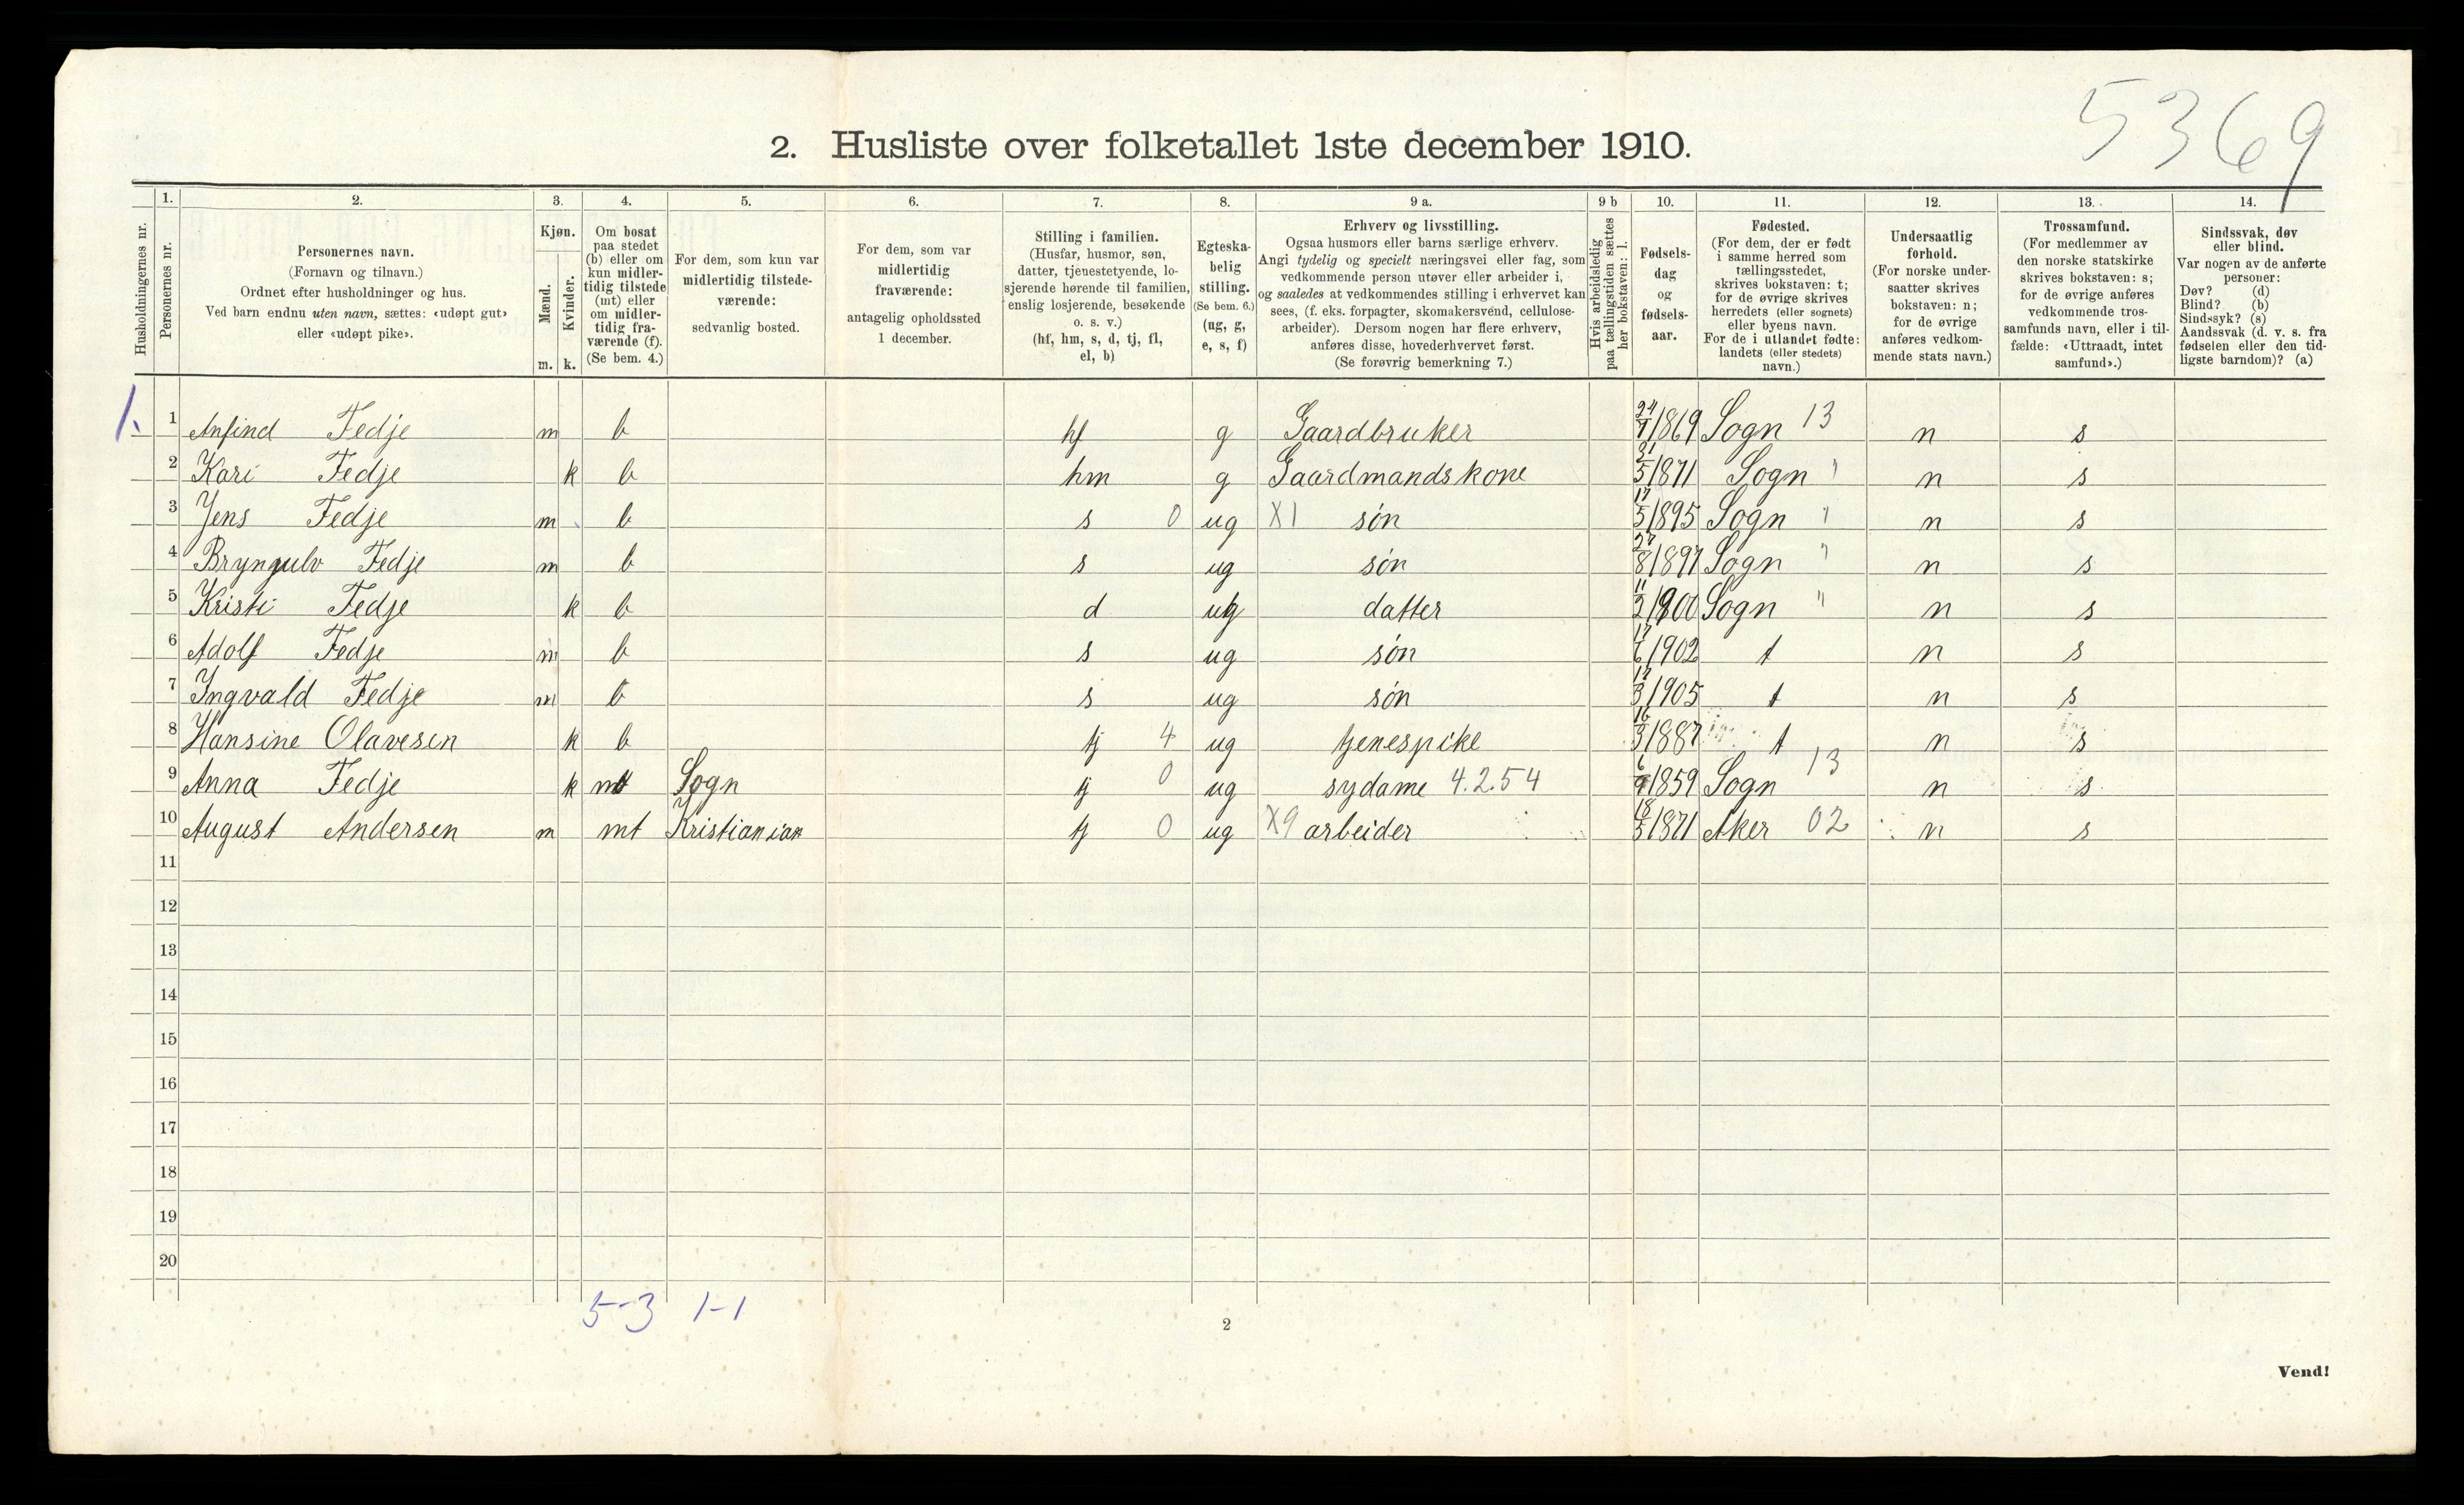 5369
2. Husliste over folketallet 1ste december 1910.
Husholdningernes nr.
1. Personernes nr.
2. Personernes navn. (Fornavn og tilnavn.) Ordnet efter husholdninger og hus. Ved barn endnu uten navn, sættes: «udøpt gut» eller «udøpt pike».
3. Kjøn. Mænd. m. Kvinder. k.
4. Om bosat paa stedet (b) eller om kun midlertidig tilstede (mt) eller om midlertidig fraværende (f). (Se bem. 4.)
5. For dem, som kun var midlertidig tilstedeværende: sedvanlig bosted.
6. For dem, som var midlertidig fraværende: antagelig opholdssted 1 december.
7. Stilling i familien. (Husfar, husmor, søn, datter, tjenestetyende, losjerende hørende til familien, enslig losjerende, besøkende o. s. v.) (hf, hm, s, d, tj, fl, el, b)
8. Egteskabelig stilling. (Se bem. 6.) (ug, g, e, s, f)
9 a. Erhverv og livsstilling. Ogsaa husmors eller barns særlige erhverv. Angi tydelig og specielt næringsvei eller fag, som vedkommende person utøver eller arbeider i, og saaledes at vedkommendes stilling i erhvervet kan sees, (f. eks. forpagter, skomakersvend, cellulosearbeider). Dersom nogen har flere erhverv, anføres disse, hovederhvervet først. (Se forøvrig bemerkning 7.)
9 b Hvis arbeidsledig paa tællingstiden sættes her bokstaven: l.
10. Fødselsdag og fødselsaar.
11. Fødested. (For dem, der er født i samme herred som tællingsstedet, skrives bokstaven: t; for de øvrige skrives herredets (eller sognets) eller byens navn. For de i utlandet fødte: landets (eller stedets) navn.)
12. Undersaatlig forhold. (For norske undersaatter skrives bokstaven: n; for de øvrige anføres vedkommende stats navn.)
13. Trossamfund. (For medlemmer av den norske statskirke skrives bokstaven: s; for de øvrige anføres vedkommende trossamfunds navn, eller i tilfælde: «Uttraadt, intet samfund».)
14. Sindssvak, døv eller blind. Var nogen av de anførte personer: Døv? (d) Blind? (b) Sindssyk? (s) Aandssvak (d. v. s. fra fødselen eller den tidligste barndom)? (a)
1. 1 Anfind Fedje m b hf g Gaardbruker 24/7 1869 Sogn 13 n s
2 Kari Fedje k b hm g Gaardmandskone 31/5 1871 Sogn " n s
3 Jens Fedje m b s 0 ug X1 søn 17/5 1895 Sogn " n s
4 Bryngulv Fedje m b s ug søn 27/8 1897 Sogn " n s
5 Kristi Fedje k b d ug datter 11/2 1900 Sogn " n s
6 Adolf Fedje m b s ug søn 17/6 1902 t n s
7 Ingvald Fedje m b s ug søn 12/3 1905 t n s
8 Hansine Olavesen k b tj 4 ug tjenespike 16/3 1887 t n s
9 Anna Fedje k mt Sogn tj 0 ug sydame 4.2.54 6/9 1859 Sogn 13 n s
10 August Andersen m mt Kristianian tj 0 ug X9 arbeider 18/5 1871 Aker 02 n s
11
12
13
14
15
16
17
18
19
20
5-3 1-1
2
Vend!